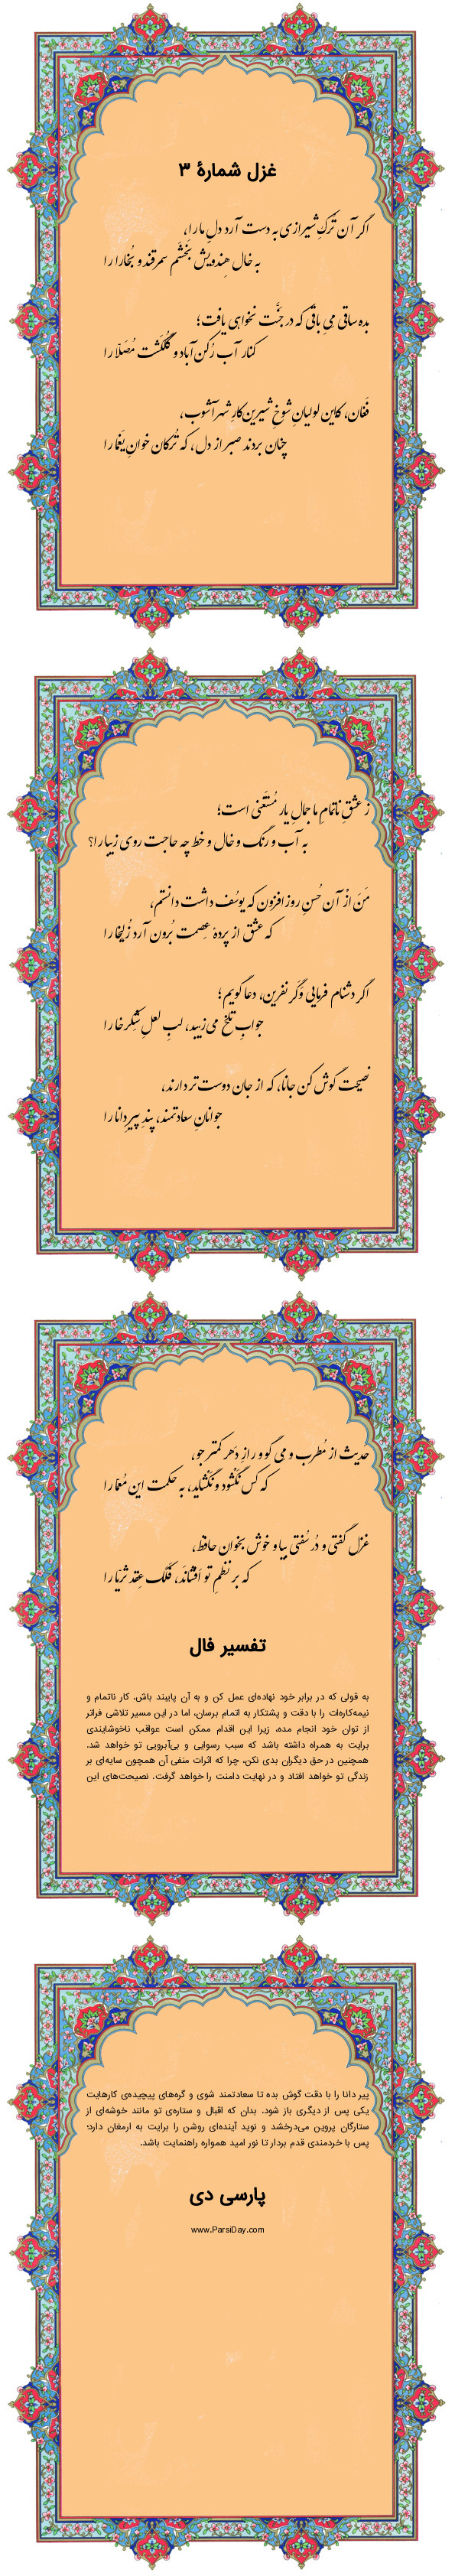 غزل شمارهٔ ۳
اگر آن تُرکِ شیرازی به دست آرد دلِ ما را،
به خال هِندویَش بَخشَم سمرقند و بُخارا را
بده ساقی مِیِ باقی که در جَنَّت نخواهی یافت؛
کنار آب رُکن‌آباد و گُلگَشت مُصَلّا را
فَغان، کاین لولیانِ شوخِ شیرین‌کارِ شهرآشوب،
چنان بردند صبر از دل، که تُرکان خوانِ یَغما را
ز عشقِ ناتمامِ ما جمالِ یار مُستَغنی است؛
به آب و رنگ و خال و خط چه حاجت روی زیبا را؟
مَن از آن حُسنِ روزافزون که یوسُف داشت دانستم،
که عشق از پردهٔ عِصمت بُرون آرد زُلیخا را
اگر دشنام فرمایی وَگَر نفرین، دعا گویم؛
جوابِ تلخ می‌زیبد، لبِ لعلِ شِکرخا را
نصیحت گوش کن جانا، که از جان دوست‌تر دارند،
جوانانِ سعادتمند، پندِ پیرِ دانا را
حدیث از مُطرب و می گو و رازِ دَهر کمتر جو،
که کس نَگْشود و نَگْشاید، به حکمت این مُعمّا را
غزل گفتی و دُر سُفتی بیا و خوش بخوان حافظ،
که بر نظمِ تو اَفشانَد، فَلَک عِقد ثریّا را
تفسیر فال
به قولی که در برابر خود نهاده‌ای عمل کن و به آن پایبند باش. کار ناتمام و
نیمه‌کاره‌ات را با دقت و پشتکار به اتمام برسان، اما در این مسیر تلاشی فراتر
از توان خود انجام مده، زیرا این اقدام ممکن است عواقب ناخوشایندی
برایت به همراه داشته باشد که سبب رسوایی و بی‌آبرویی تو خواهد شد.
همچنین در حق دیگران بدی نکن، چرا که اثرات منفی آن همچون سایه‌ای بر
زندگی تو خواهد افتاد و در نهایت دامنت را خواهد گرفت. نصیحت‌های این
پیر دانا را با دقت گوش بده تا سعادتمند شوی و گره‌های پیچیده‌ی کارهایت
یکی پس از دیگری باز شود. بدان که اقبال و ستاره‌ی تو مانند خوشه‌ای از
ستارگان پروین می‌درخشد و نوید آینده‌ای روشن را برایت به ارمغان دارد؛
پس با خردمندی قدم بردار تا نور امید همواره راهنمایت باشد.
پارسی دی
www.ParsiDay.com